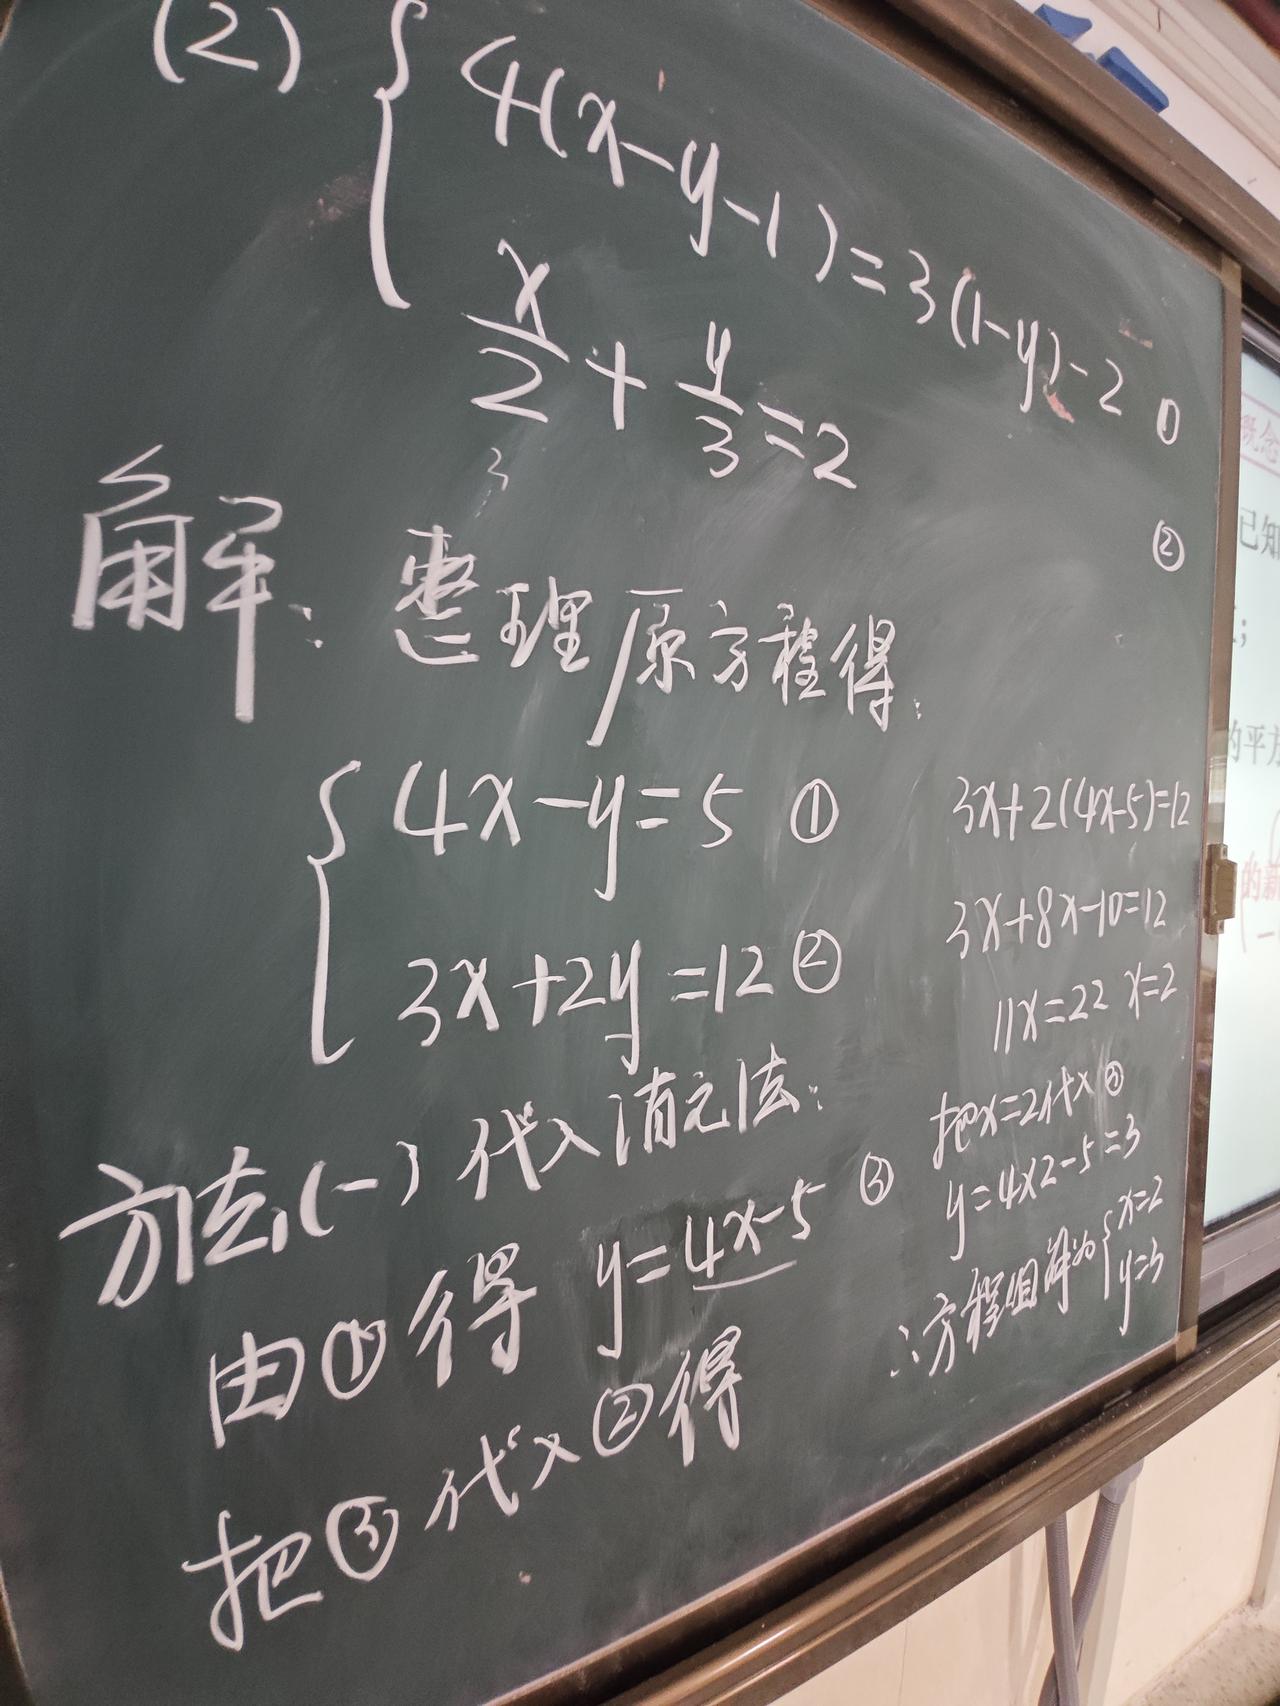 (2) { 4(x-y-1)=3(1-y)-2 ①
x/2 + y/3 = 2 ②
3
解: 整理原方程得:
{ 4x-y=5 ①
3x+2y=12 ②
方法(一)代入消元法:
由①得 y=4x-5 ③
把③代入②得
3x+2(4x-5)=12
3x+8x-10=12
11x=22 x=2
把x=2代入③
y=4×2-5=3
∴方程组解为{ x=2
y=3
概念
已知
的平方
的新